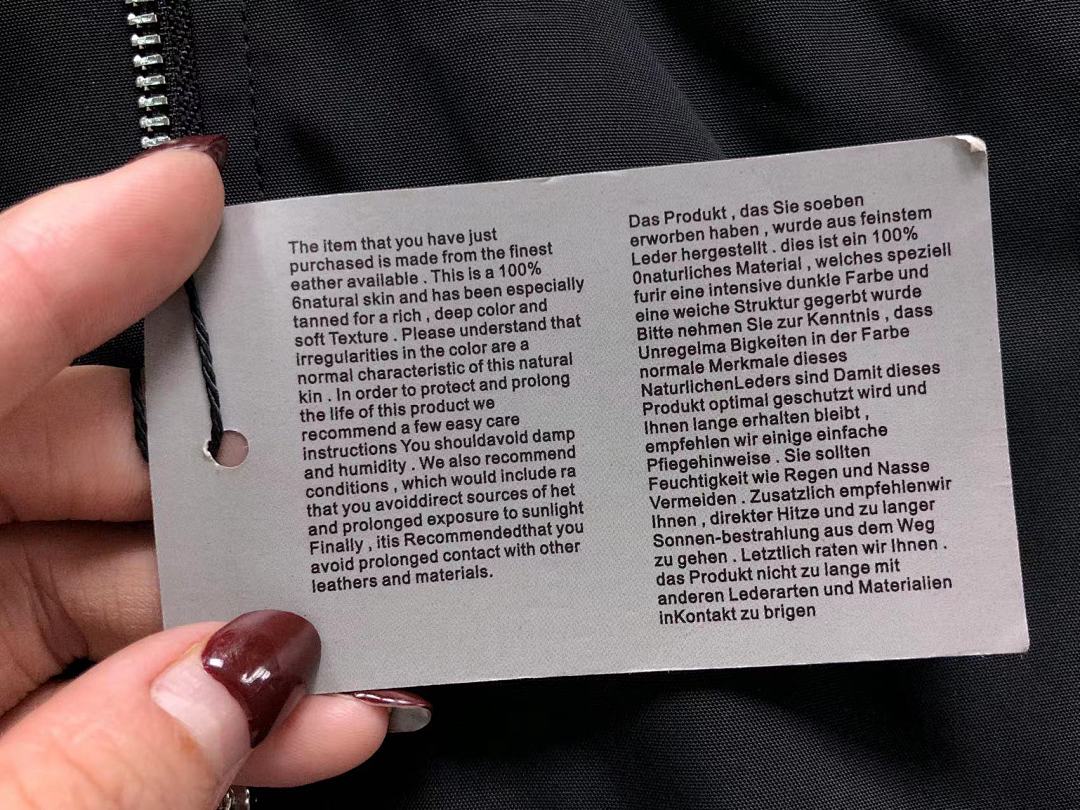 The item that you have just
purchased is made from the finest
eather available . This is a 100%
6natural skin and has been especially
tanned for a rich , deep color and
soft Texture . Please understand that
irregularities in the color are a
normal characteristic of this natural
kin . In order to protect and prolong
the life of this product we
recommend a few easy care
instructions You shouldavoid damp
and humidity . We also recommend
conditions , which would include ra
that you avoiddirect sources of het
and prolonged exposure to sunlight
Finally , itis Recommendedthat you
avoid prolonged contact with other
leathers and materials.
Das Produkt , das Sie soeben
erworben haben , wurde aus feinstem
Leder hergestellt . dies ist ein 100%
0naturliches Material , welches speziell
furir eine intensive dunkle Farbe und
eine weiche Struktur gegerbt wurde
Bitte nehmen Sie zur Kenntnls , dass
Unregelma Bigkeiten in der Farbe
normale Merkmale dieses
NaturlichenLeders sind Damit dieses
Produkt optimal geschutzt wird und
Ihnen lange erhalten bleibt ,
empfehlen wir einige einfache
Pfiegehinweise . Sie sollten
Feuchtigkeit wie Regen und Nasse
Vermeiden . Zusatzlich empfehlenwir
Ihnen , direkter Hitze und zu langer
Sonnen-bestrahlung aus dem Weg
zu gehen . Letztlich raten wir Ihnen .
das Produkt nicht zu lange mit
anderen Lederarten und Materialien
inKontakt zu brigen